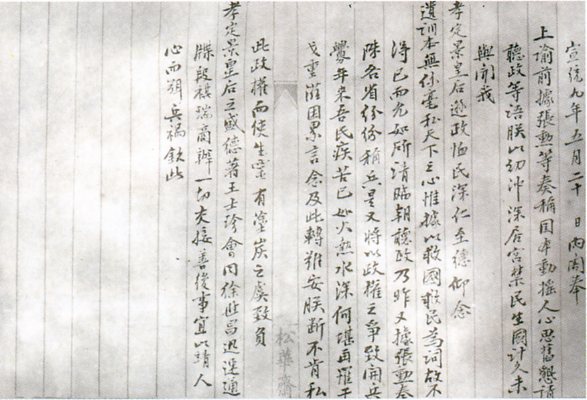 宣統九年五月二十 日內閣奉
上諭前據張勳等奏稱國本動搖人心思舊懇請
聽政等語朕以幼沖深居宮禁民生國計久未
與聞我
孝定景皇后遜政恤民深仁至德仰念
遺訓本無絲毫私天下之心惟據以救國救民為詞故不
得已而允如所請臨朝聽政乃昨又據張勳奏
陳各省紛紛稱兵是又將以政權之爭致開兵
釁年來吾民疾苦已如火熱水深何堪再罹干
戈重滋困累言念及此轉難安朕斷不肯私
此政權而使生靈有塗炭之虞致負
孝定景皇后之盛德著王士珍會同徐世昌迅速通
牒段祺瑞商辦一切交接善後事宜以靖人
心而弭兵禍欽此
松華齋